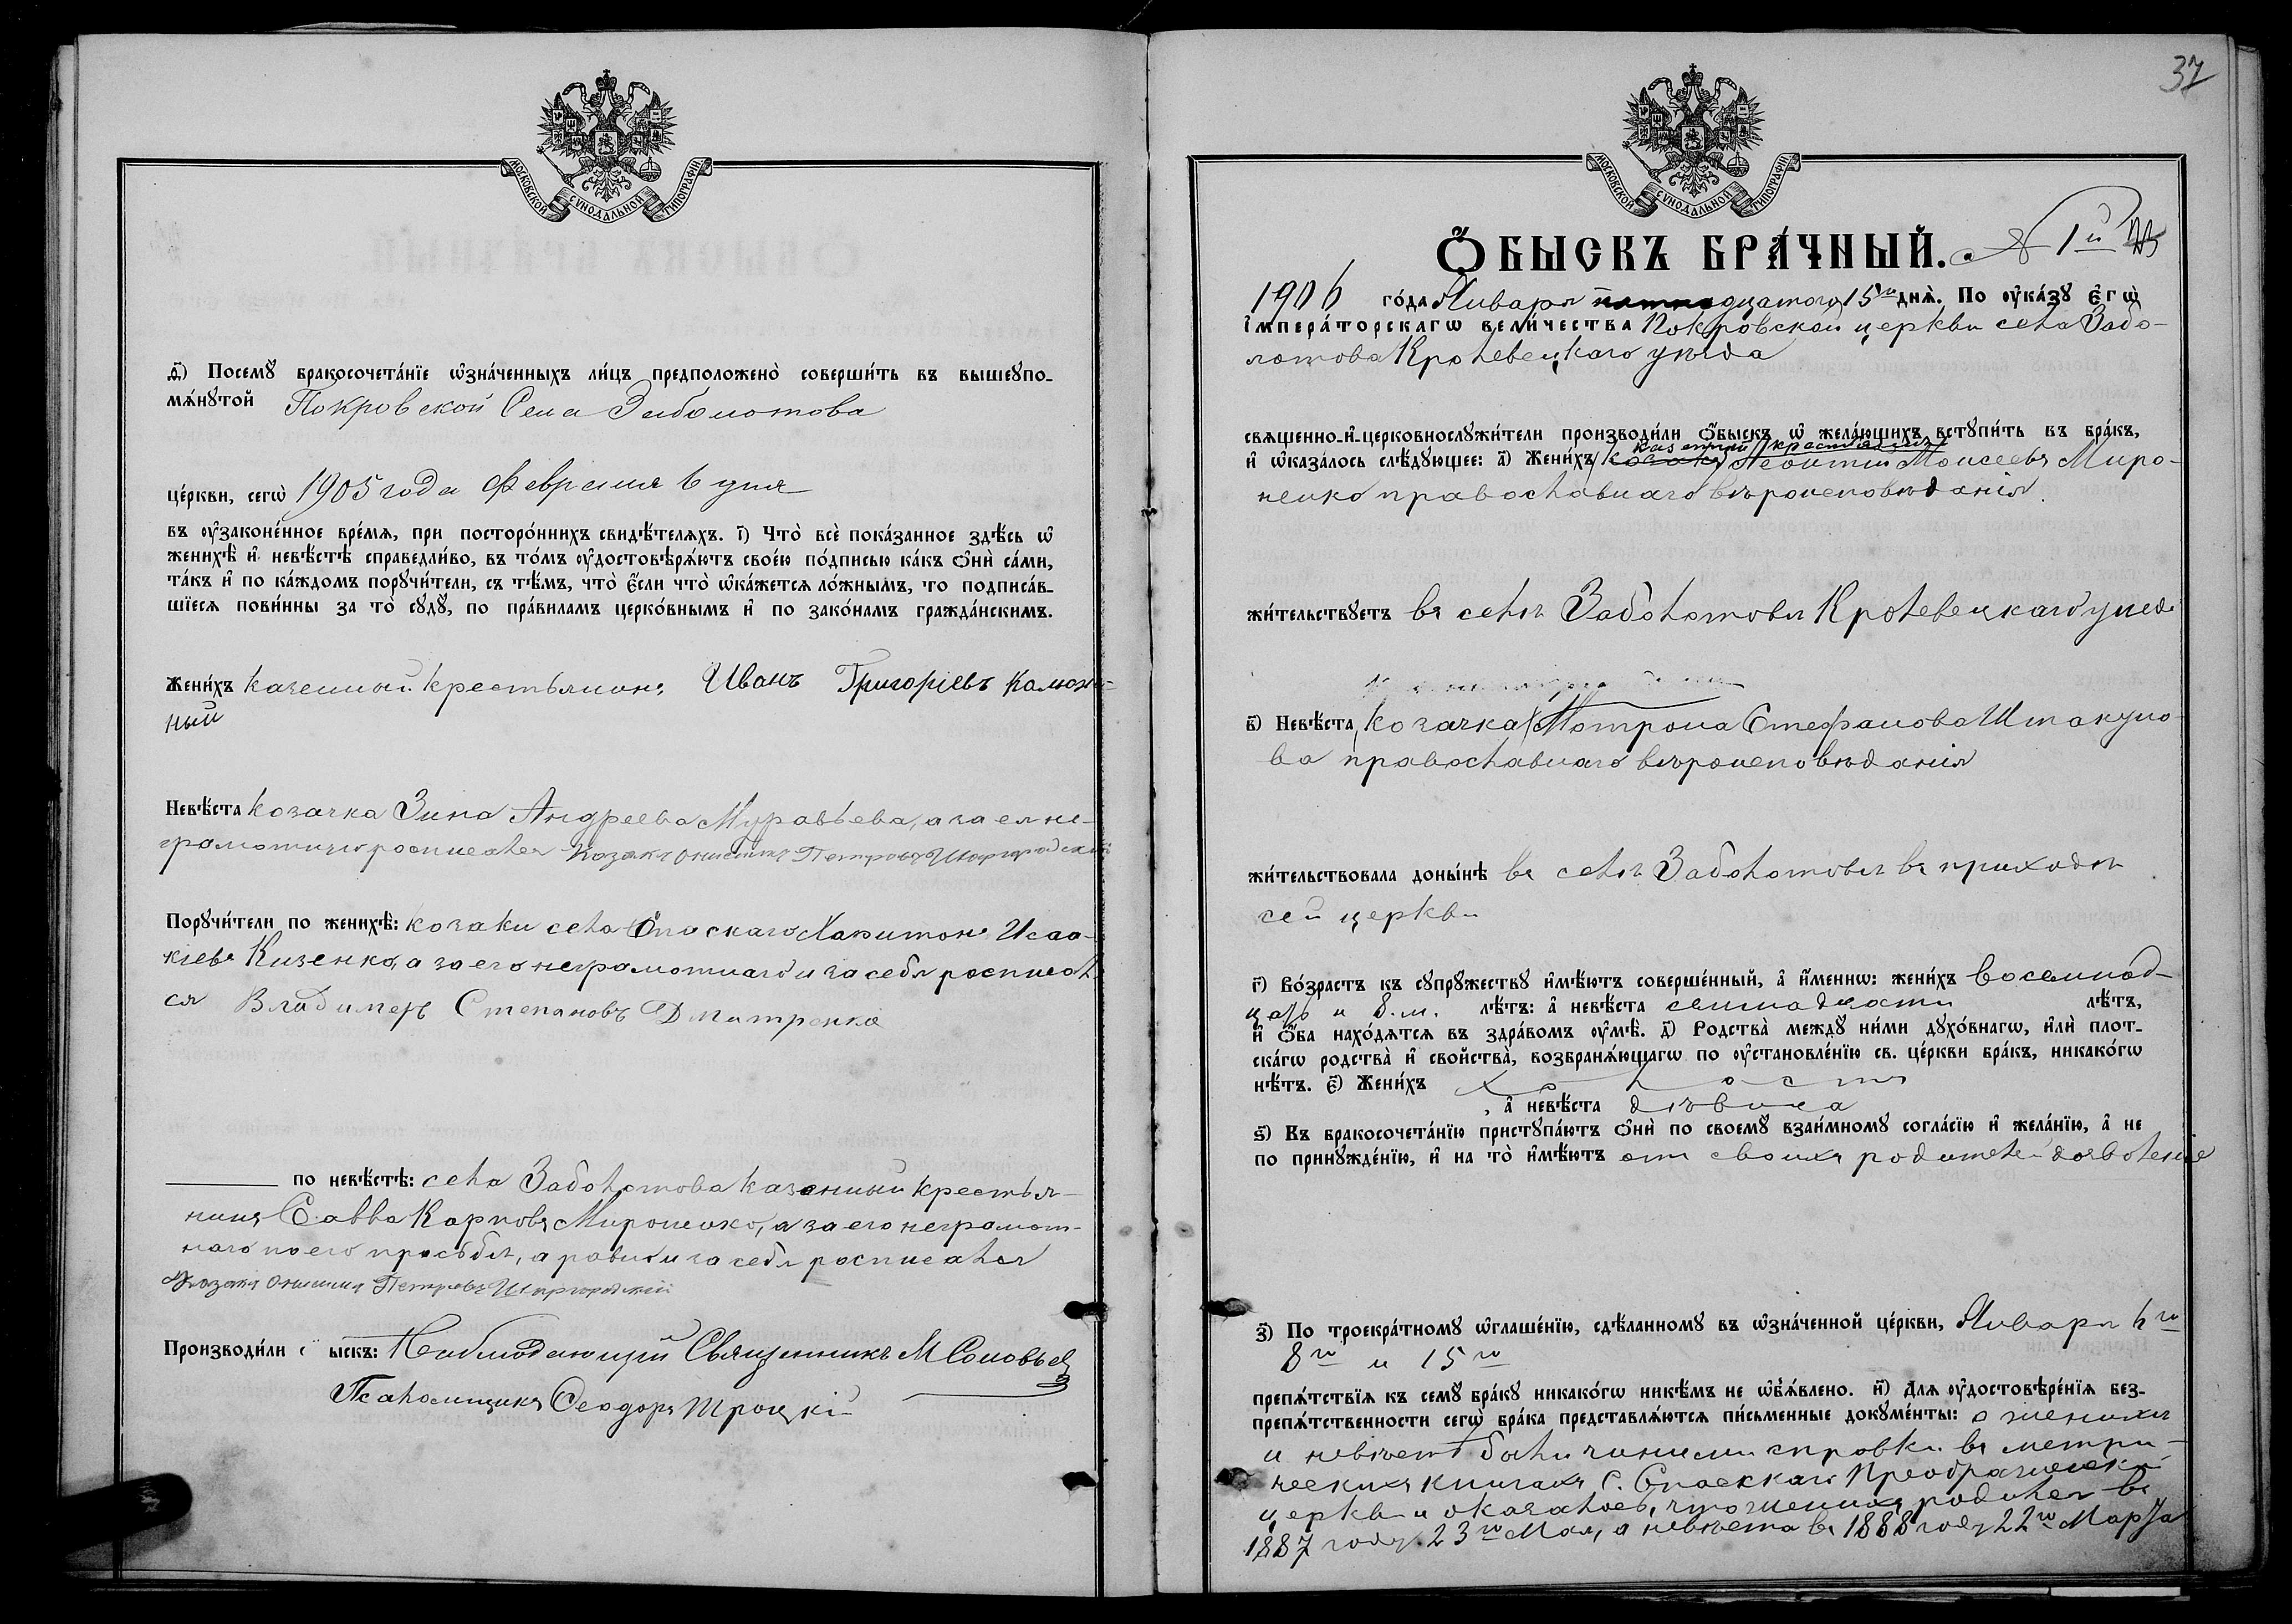 МОСКОВСКОЙ СѴНОДАЛЬНОЙ ТИПОГРАФІИ
д҃і) Посемꙋ бракосочета́нїе ѡ҆зна́ченныхъ ли́цъ предположено̀ соверши́ть въ вышеꙋпо-
мѧ́нꙋтой Покровской Села Заболотова
це́ркви, сегѡ̀ 1905 года Февраля 6 дня
въ оу҆законе́нное вре́мѧ, при посторо́ннихъ свидѣ́телѧхъ. і҃) Что̀ всѐ пока́занное здѣ́сь ѡ҆
женихѣ̀ и҆ невѣ́стѣ справедли́во, въ то́мъ оу҆достовѣрѧ́ютъ свое́ю по́дписью ка́къ ѻ҆нѝ са́ми,
та́къ и҆ по ка́ждомъ порꙋчи́тели, съ тѣ́мъ, что̀ є҆́сли что̀ ѡ҆ка́жетсѧ ло́жнымъ, то подписа́в-
шїесѧ пови́нны за то̀ сꙋдꙋ̀, по пра́виламъ церко́внымъ и҆ по зако́намъ гражда́нскимъ.
Жени́хъ казенный крестьянинъ Иванъ Григоріевъ Калюж-
ный
Невѣ́ста козачка Зина Андреева Муравьева, а за ея не-
грамотную росписался козакъ Онисимъ Петровъ Шаргородскій
Порꙋчи́тели по женихѣ̀: козаки села Спаскаго Харитонъ Исаа-
кіевъ Кизенко, а за его неграмотнаго и за себя росписал
ся Владимеръ Степановъ Дмитренко
по невѣ́стѣ: села Заболотова казенный крестья-
нинъ Савва Карповъ Мироненко, а за его неграмот-
наго по его просьбѣ, а равно и за себя росписался
Козакъ Онисимъ Петровъ Шаргородскій
Производи́ли ыскъ: Наблюдающій Священникъ М Соловьев
Псаломщикъ Ѳеодоръ Троцкій
37
МОСКОВСКОЙ СѴНОДАЛЬНОЙ ТИПОГРАФІИ
Ѻ҆БЫСКЪ БРА́ЧНЫЙ. № 1й
1906 го́да Января пятнадцатого 15го днѧ̀. По оу҆ка́зꙋ є҆гѡ̀
і҆мпера́торскагѡ вели́чества Покровской церкви села Забо-
лотова Кролевецкаго уѣзда
свѧщенно-и҆-церковнослꙋжи́тели производи́ли ѻ҆́быскъ ѡ҆ жела́ющихъ встꙋпи́ть въ бра́къ,
казенный крестьянинъ
и҆ ѡ҆каза́лось слѣ́дꙋющее: а҃) Жени́хъ козакъ Леонтій Моисеевъ Миро-
ненко православнаго вѣроисповѣданія
жи́тельствꙋетъ въ селѣ Заболотовѣ Кролевецкаго уѣзд
в҃) Невѣ́ста козачка Мотрона Стефанова Штакуно-
ва православнаго вѣроисповѣданія
жи́тельствовала доны́нѣ въ селѣ Заболотовѣ въ приходѣ
сей церкви
г҃) Во́зрастъ къ сꙋпрꙋ́жествꙋ и҆мѣ́ютъ соверше́нный, а҆ и҆́меннѡ: жени́хъ восемнад-
цать и 8. м. лѣ́тъ: а҆ невѣ́ста семнадцати лѣ́тъ,
и҆ ѻ҆́ба нахо́дѧтсѧ въ здра́вомъ оу҆мѣ̀. д҃) Родства̀ междꙋ̀ ни́ми дꙋхо́внагѡ, и҆лѝ плот-
ска́гѡ родства̀ и҆ сво́йства, возбранѧ́ющагѡ по оу҆становле́нїю св. це́ркви бра́къ, никако́гѡ
нѣ́тъ. є҃) Жени́хъ холостъ
, а҆ невѣ́ста дѣвица
ѕ҃) Къ бракосочета́нїю пристꙋпа́ютъ ѻ҆нѝ по своемꙋ̀ взаи́мномꙋ согла́сїю и҆ жела́нїю, а҆ не
по принꙋжде́нїю, и҆ на то̀ и҆мѣ́ютъ отъ своихъ родителей дозволеніе
з҃) По троекра́тномꙋ ѡ҆глаше́нїю, сдѣ́ланномꙋ въ ѡ҆зна́ченной це́ркви, Января 6го
8го и 15го
препѧ́тствїѧ къ семꙋ̀ бра́кꙋ никако́гѡ никѣ́мъ не ѡ҆б̾ѧ́влено. и҃) Длѧ оу҆достовѣре́нїѧ без-
препѧ́тственности сегѡ̀ бра́ка представлѧ́ютсѧ пи́сьменные докꙋме́нты: о женихѣ
и невѣстѣ были чинимы справки въ метри-
ческихъ книгахъ с. Спасскаго Преображенской
церкви и оказалось, что женихъ родился въ
1887 году 23го Мая, а невѣста въ 1888 году 22го Марта